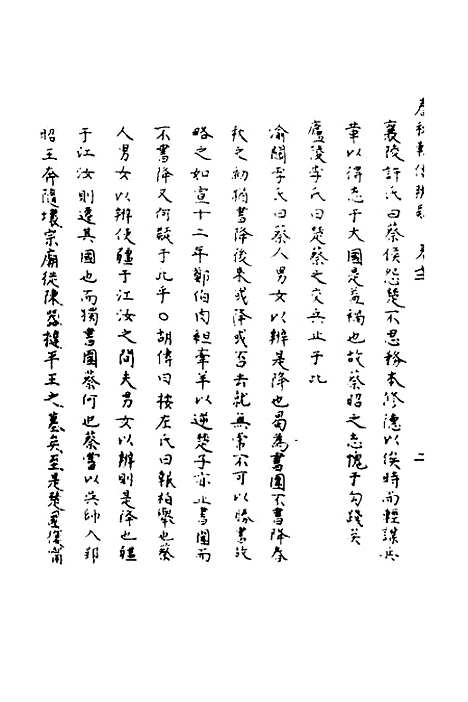 春秋輯傳辨疑 卷 二
襄陵許氏曰蔡侯怨楚不思務本修德以俟時而輕謀兵
革以得志于大國是蓋禍也故蔡昭之志愧于勾踐矣
廬陵李氏曰楚蔡之交兵止于此
渝關李氏曰蔡人男女以辨是降也曷為書圍不書降春
秋之初猶書降後來或降或否去就無常不可以勝書故
略之如宣十二年鄭伯肉袒牽羊以逆楚子亦止書圍而
不書降又何疑于此乎○胡傳曰按左氏曰報柏舉也蔡
人男女以辨使疆于江汝之間夫男女以辨則是降也疆
于江汝則遷其國也而獨書圍蔡何也蔡嘗以吳師入郢
昭王奔隨壞宗廟徙陳器撻平王之墓矣至是楚國復甯